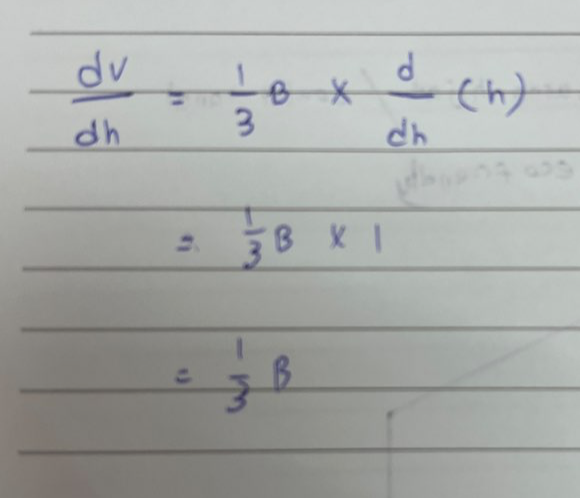 dv/dh = 1/3 B × d/dh (h)
= 1/3 B × 1
= 1/3 B